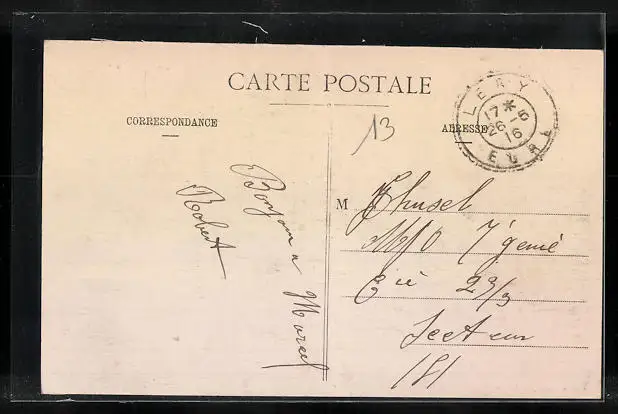 CARTE POSTALE
CORRESPONDANCE
ADRESSE
13
LERY
17*
26-5
16
EURE
Bonjour a Marcel
Robert
M Thusel
7e génie
Cie 23/3
Secteur
151